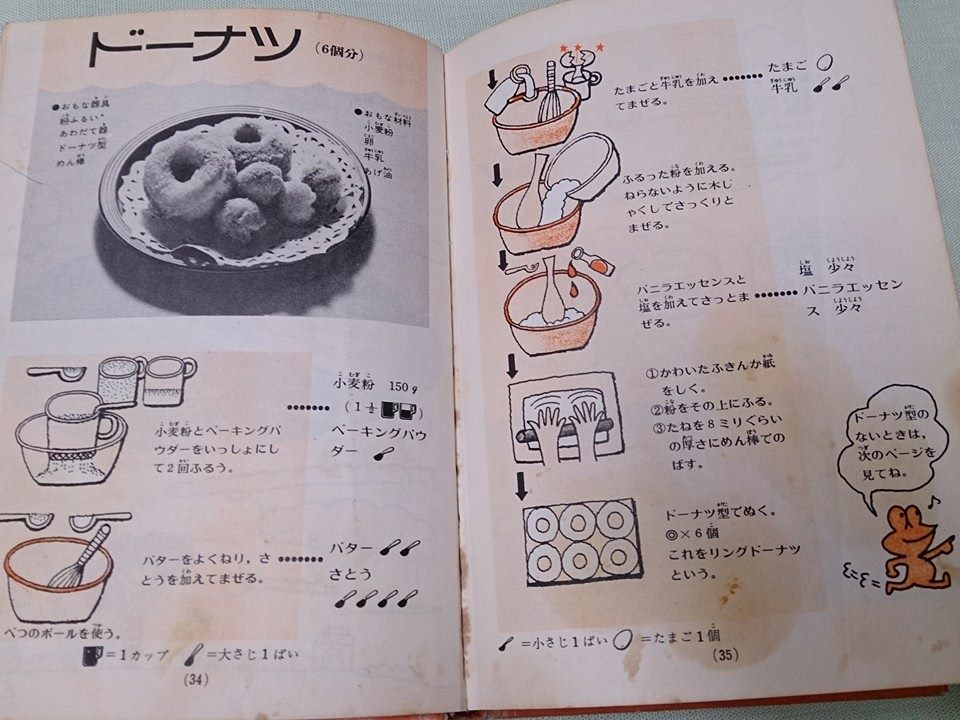 ドーナツ (6個分)
●おもな器具
粉ふるい
あわだて器
ドーナツ型
めん棒
●おもな材料
小麦粉
卵
牛乳
あげ油
小麦粉 150g
(1½)
ベーキングパウ
ダー
小麦粉とベーキングパ
ウダーをいっしょにし
て2回ふるう。
バターをよくねり、さ
とうを加えてまぜる。
バター
さとう
べつのボールを使う。
=1カップ =大さじ1ぱい
(34)
たまごと牛乳を加え
てまぜる。
たまご
牛乳
ふるった粉を加える。
ねらないように木じ
ゃくしてさっくりと
まぜる。
バニラエッセンスと
塩を加えてさっとま
ぜる。
塩 少々
バニラエッセン
ス 少々
①かわいたふきんか紙
をしく。
②粉をその上にふる。
③たねを8ミリぐらい
の厚さにめん棒での
ばす。
ドーナツ型でぬく。
◎×6個
これをリングドーナツ
という。
ドーナツ型の
ないときは、
次のページを
見てね。
=小さじ1ぱい =たまご1個
(35)